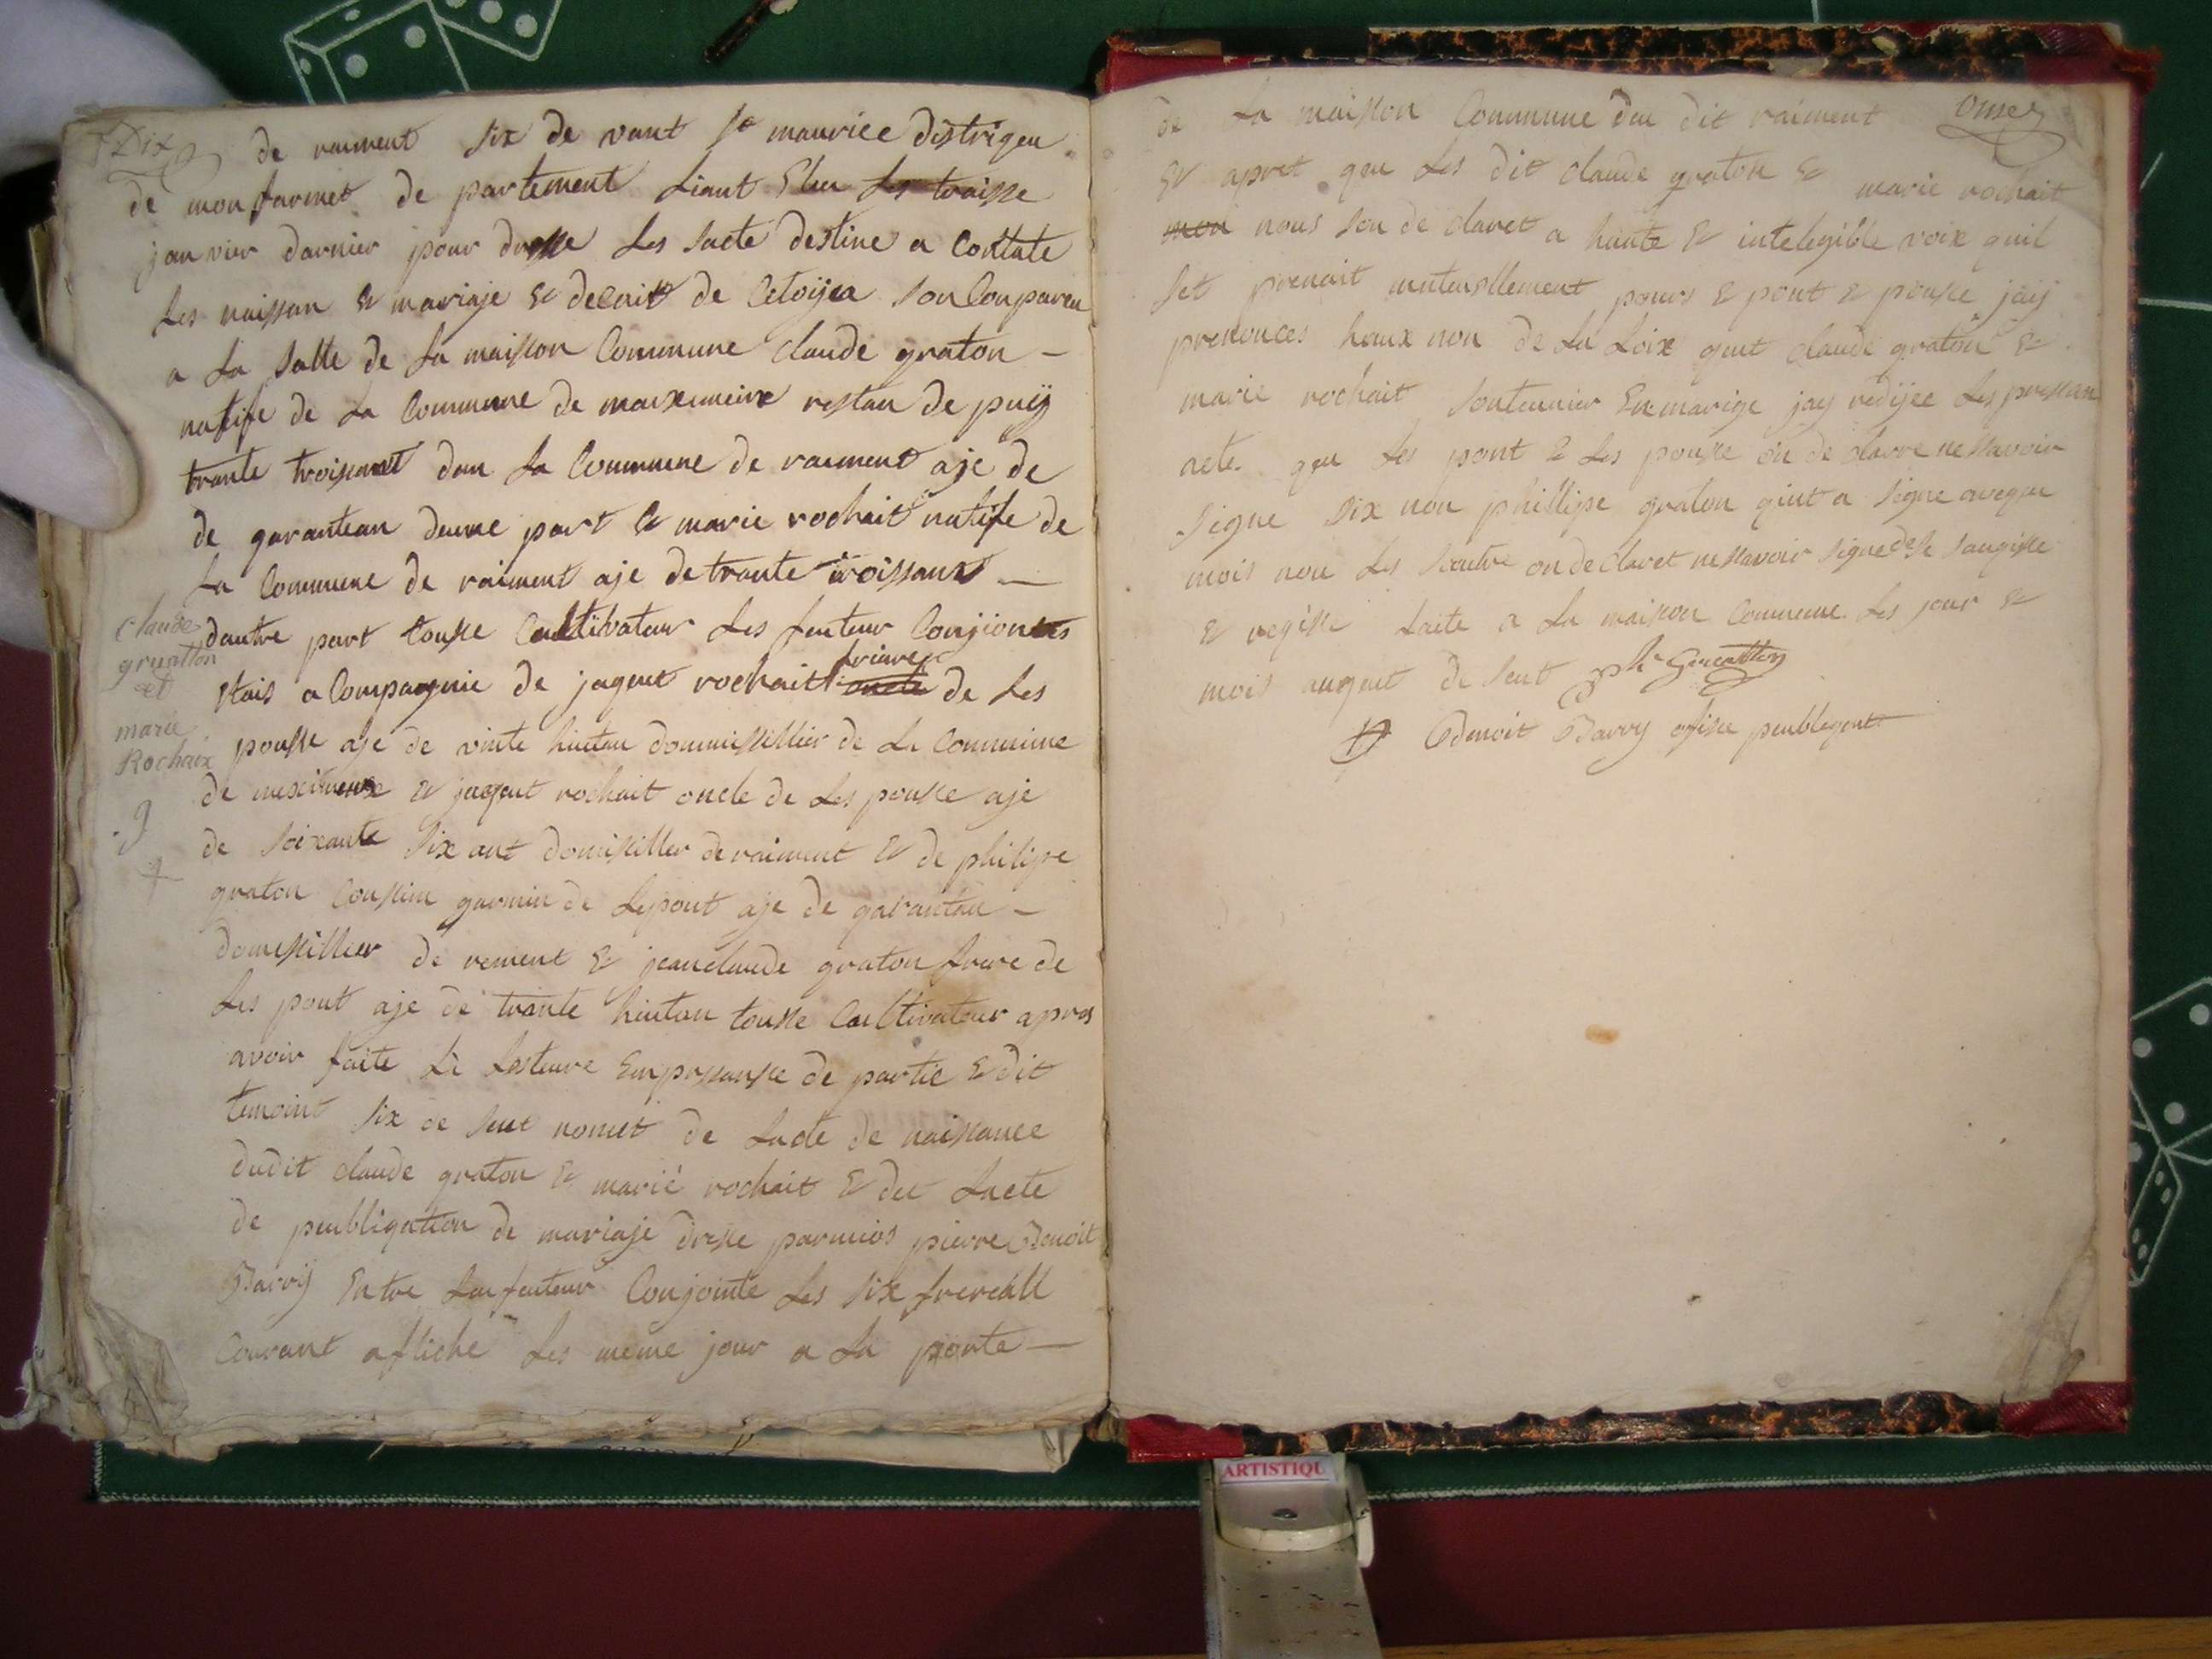 Dix
de raiment six de vant st maurice distrigeu
de monfarmet de partement Liant Elu Les traisse
janvier darnier pour dresse Les lacte destine a Contate
Les naissan & mariaje & decait de Citoijea son Conpareu
a La salle de La maisson Commune claude graton -
natife de La Commune de maixemeixe restan de puij
trante troisant dan La Commune de raiment aje de
de garantean deune part & marie rochait natife de
La Commune de raiment aje de trante troissans -
dautre part tousse Cultivateur Les feuteur Conjiontes
Claude
gratton
et
marie
Rochaix
9
stais a Compagnie de jaquet rochait oncle friare de Les
pousse aje de vinte huitan dommissillier de La Commune
de meximeuxe & jaquet rochait oncle de Les pousse aje
de soixante six ant domisiller de raiment & de philipe
graton Coussin garmin de Lepout aje de garantan -
domissillier de rement & jean claude graton frere de
Les pout aje de trante huitan tousse Caultivateur apres
avoir faite Le Lesteure Emprssansse de partie & dit
temoint six de seut nomét de Lacte de naissance
dudit claude graton & marié rochait & det Lacte
de peubligation de mariaje dresse parmios pierre Benoit
Barrÿ Entre Leufeuteur Conjointe Les six frereall
Courant affiche Les meme jour a La porte -
onse
de La maisson Commune deu dit raiment
Et apret qeu Les dit claude graton & marie rochait
mon nous son de claret a haute & intelegible voix quil
set prenait mutuellement pours & pout & pousse jaij
prenonces haux non de La Loix qeut claude graton &
marie rochait sonteunier En marige jaij redijee Les pressan
acte qeu Les pont & Les pousse on de clarre ne ssavoir
signe six non phillipe graton qiut a signe aveqeu
mois non Les soutre on de claret ne ssavoir signe desse saugisse
& regisse Laite a La maison Commune Les jour &
mois anqeut de seut ph Greatton
Benoit Barry ofise peublequet